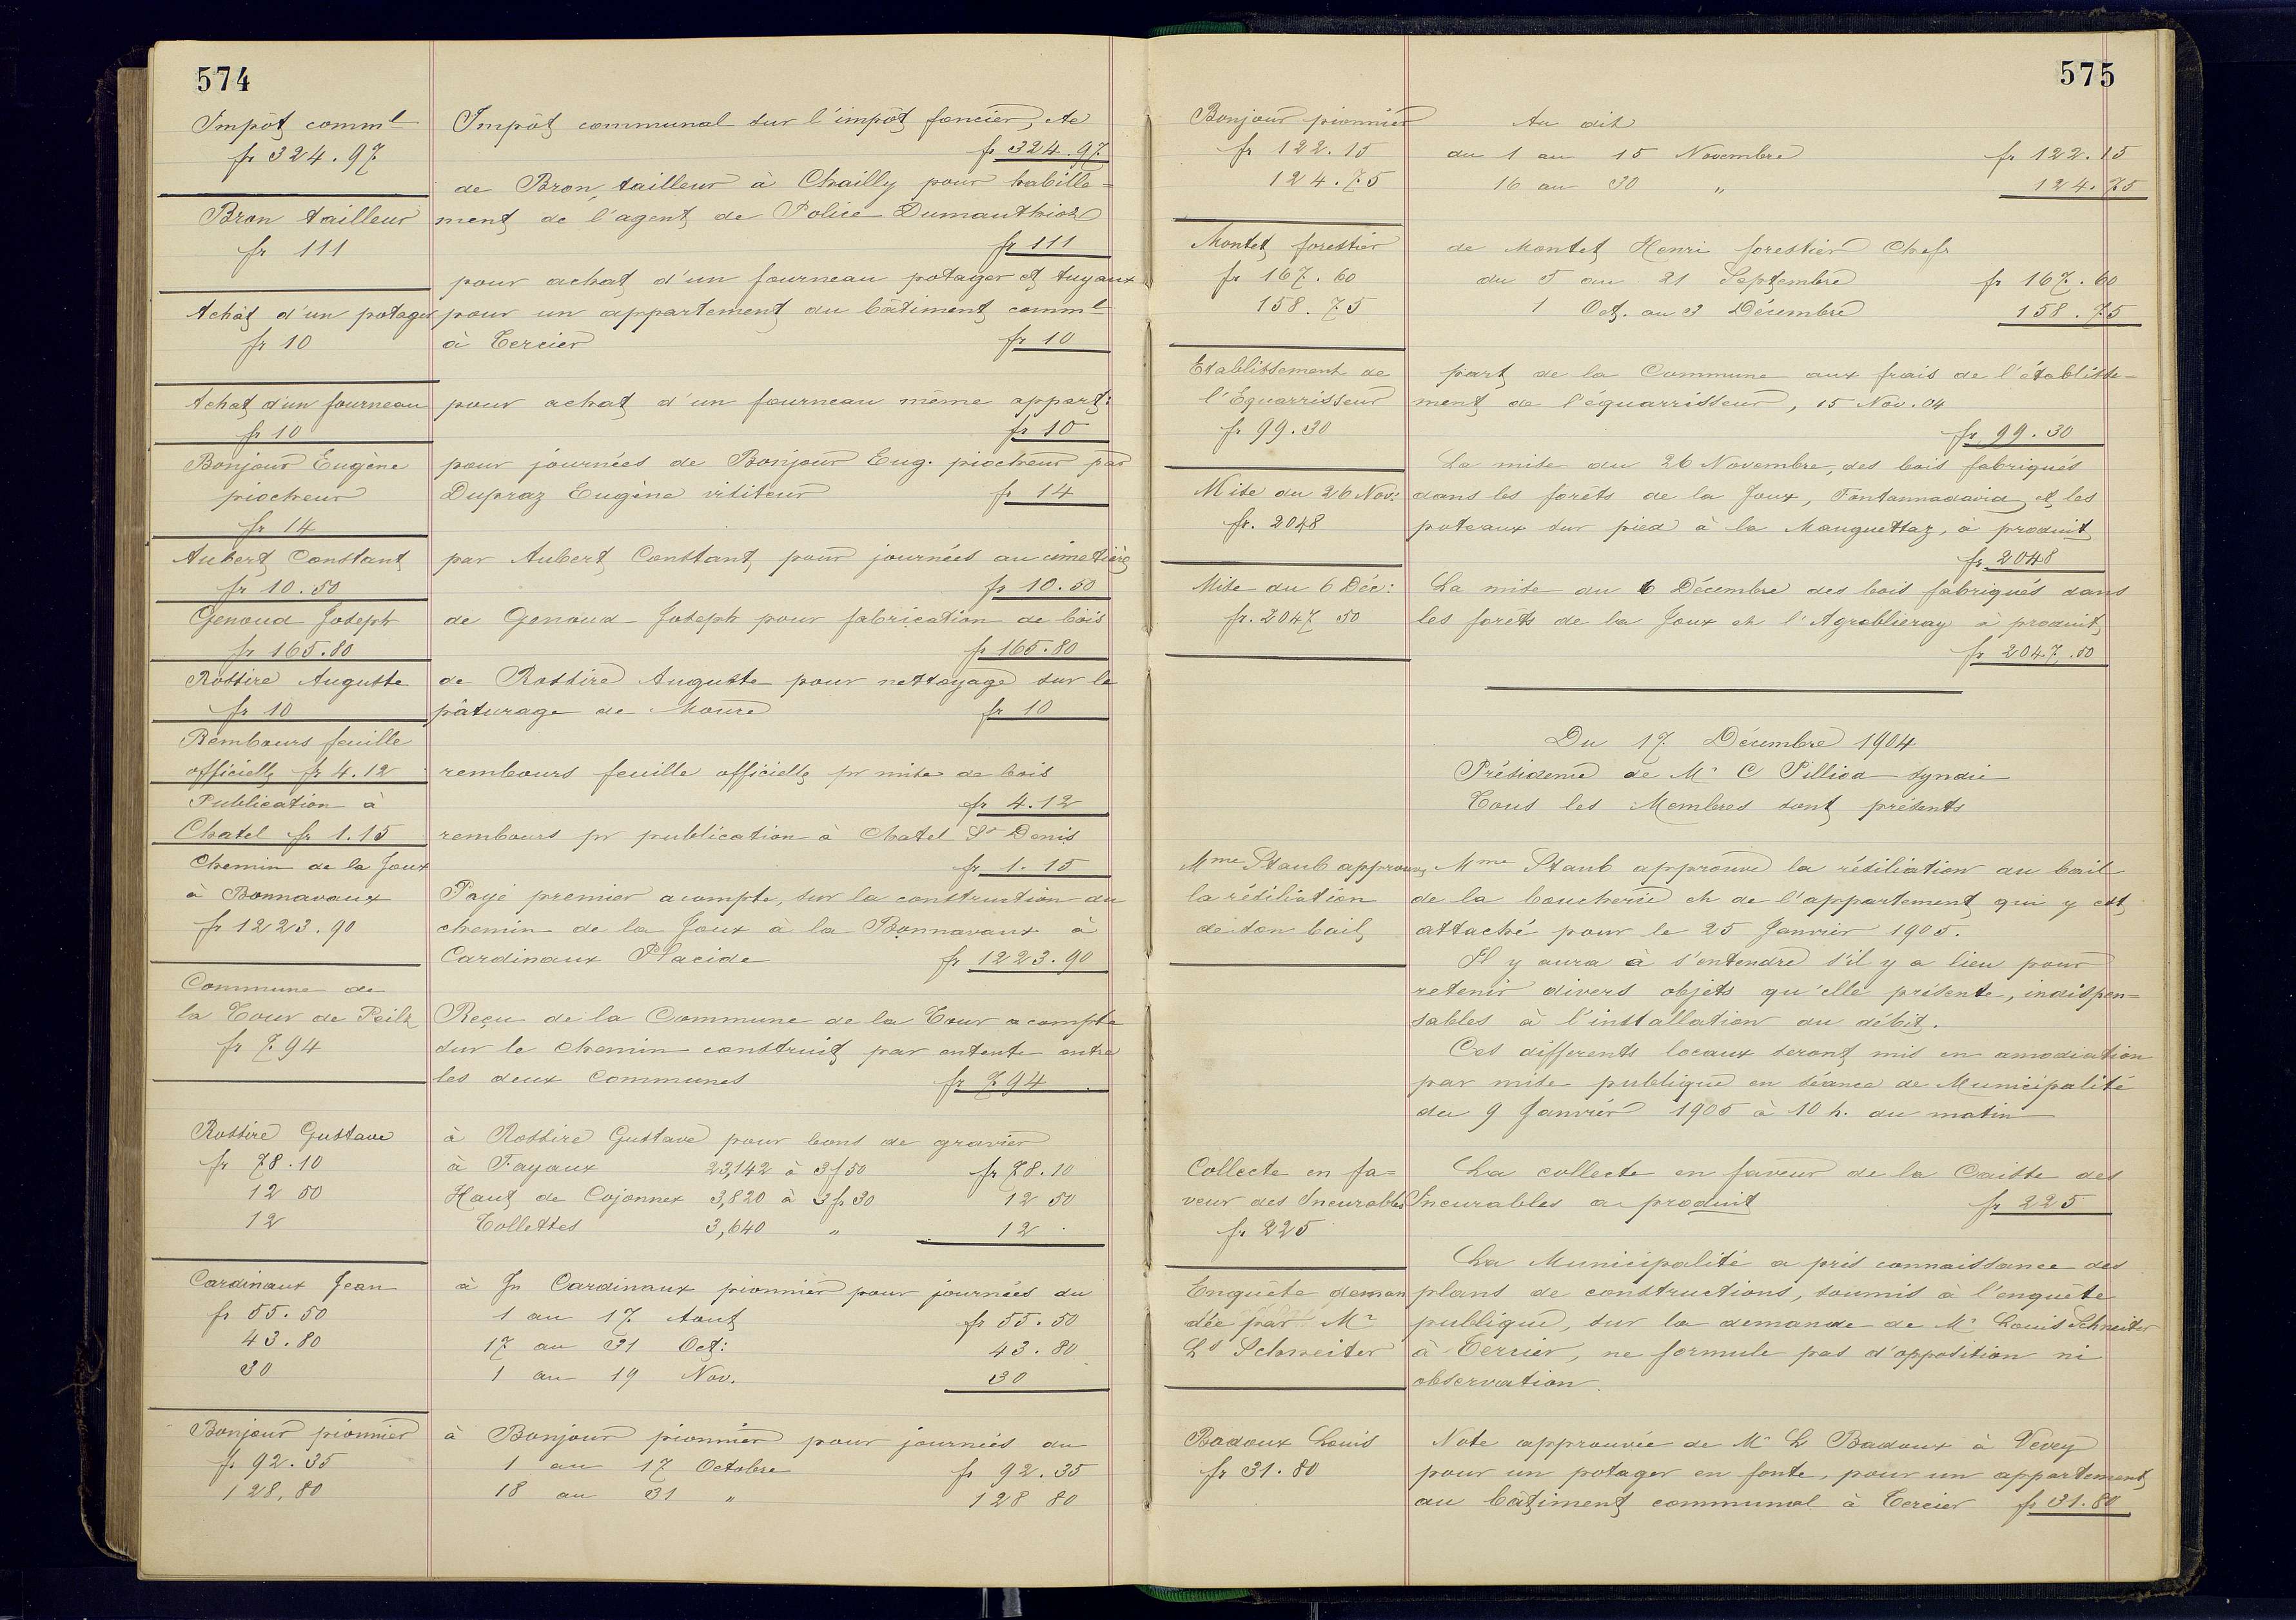 574
Impôt comml
fr 324.97
Impôt communal sur l'impôt foncier, etc
fr 324.97
Bron tailleur
fr 111
de Bron, tailleur à Chailly pour habille=
ment de l'agent de Police Dumauthioz
fr 111
Achat d'un potager
fr 10
pour achat d'un fourneau potager et tuyaux
pour un appartement du bâtiment comml
à Tercier fr 10
Achat d'un fourneau
fr 10
pour achat d'un fourneau même appart:
fr 10
Bonjour Eugène
piocheur
fr 14
pour journées de Bonjour Eug. piocheur par
Dupraz Eugène visiteur fr 14
Aubert Constant
fr 10.50
par Aubert Constant pour journées au cimetière
fr 10.50
Genoud Joseph
fr 165.80
de Genoud Joseph pour fabrication de bois
fr 165.80
Rossire Auguste
fr 10
de Rossire Auguste pour nettoyage sur le
pâturage de Moure fr 10
Rembours feuille
officielle fr 4.12
rembours feuille officielle pr mise de bois
fr 4.12
Publication à
Chatel fr 1.15
rembours pr publication à Chatel St Denis
fr 1.15
Chemin de la Joux
à Bonnavaux
fr 1223.90
Payé premier acompte, sur la construction du
chemin de la Joux à la Bonnavaux à
Cardinaux Placide fr 1223.90
Commune de
la Tour de Peilz
fr 794
Reçu de la Commune de la Tour acompte
sur le chemin construit par entente entre
les deux Communes fr 794
Rossire Gustave
fr 78.10
12 50
12
à Rossire Gustave pour bons de gravier
à Fayaux 23,142 à 3f50 fr 78.10
Haut de Cojonnex 3,820 à 3fr30 12 50
Tollettes 3,640 " 12
Cardinaux Jean
fr 55.50
43.80
30
à Jn Cardinaux pionnier pour journées du
1 au 17 Aout fr 55.50
17 au 31 Oct: 43.80
1 au 19 Nov. 30
Bonjour pionnier
fr 92.35
128,80
à Bonjour pionnier pour journées du
1 au 17 Octobre fr 92.35
18 au 31 " 128 80
575
Bonjour pionnier
fr 122.15
124.75
Au dit
du 1 au 15 Novembre fr 122.15
16 au 30 " 124.75
Montet forestier
fr 167.60
158.75
de Montet Henri forestier Chef
du 5 au 21 Septembre fr 167.60
1 Oct. au 3 Décembre 158.75
Etablissement de
l'Equarrisseur
fr 99.30
part de la Commune aux frais de l'établisse=
ment de l'équarrisseur, 15 Nov. 04
fr 99.30
Mise du 26 Nov:
fr. 2048
La mise du 26 Novembre, des bois fabriqués
dans les forêts de la Joux, Fontannadavid et les
poteaux sur pied à la Manguettaz, a produit
fr. 2048
Mise du 6 Déc:
fr. 2047 50
La mise du 6 Décembre des bois fabriqués dans
les forêts de la Joux et l'Agreblieray a produit
fr 2047.50
Du 17 Décembre 1904
Présidence de Mr C Pilliod syndic
Tous les Membres sont présents
Mme Staub approuve
la résiliation
de son bail
Mme Staub approuve la résiliation du bail
de la boucherie et de l'appartement qui y est
attaché pour le 25 Janvier 1905.
Il y aura à s'entendre s'il y a lieu pour
retenir divers objets qu'elle présente, indispen=
sables à l'installation du débit.
Ces differents locaux seront mis en amodiation
par mise publique en séance de Municipalité
du 9 Janvier 1905 à 10 h. du matin
Collecte en fa=
veur des Incurables
fr 225
La collecte en faveur de la Caisse des
Incurables a produit fr 225
Enquête deman
dée par Mr
Ls Schneiter
La Municipalité a pris connaissance des
plans de constructions, soumis à l'enquête
publique, sur la demande de Mr Louis Schneiter
à Tercier, ne formule pas d'opposition ni
observation.
Badoux Louis
fr 31.80
Note approuvée de Mr L Badoux à Vevey
pour un potager en fonte, pour un appartement
au bâtiment communal à Tercier fr 31.80